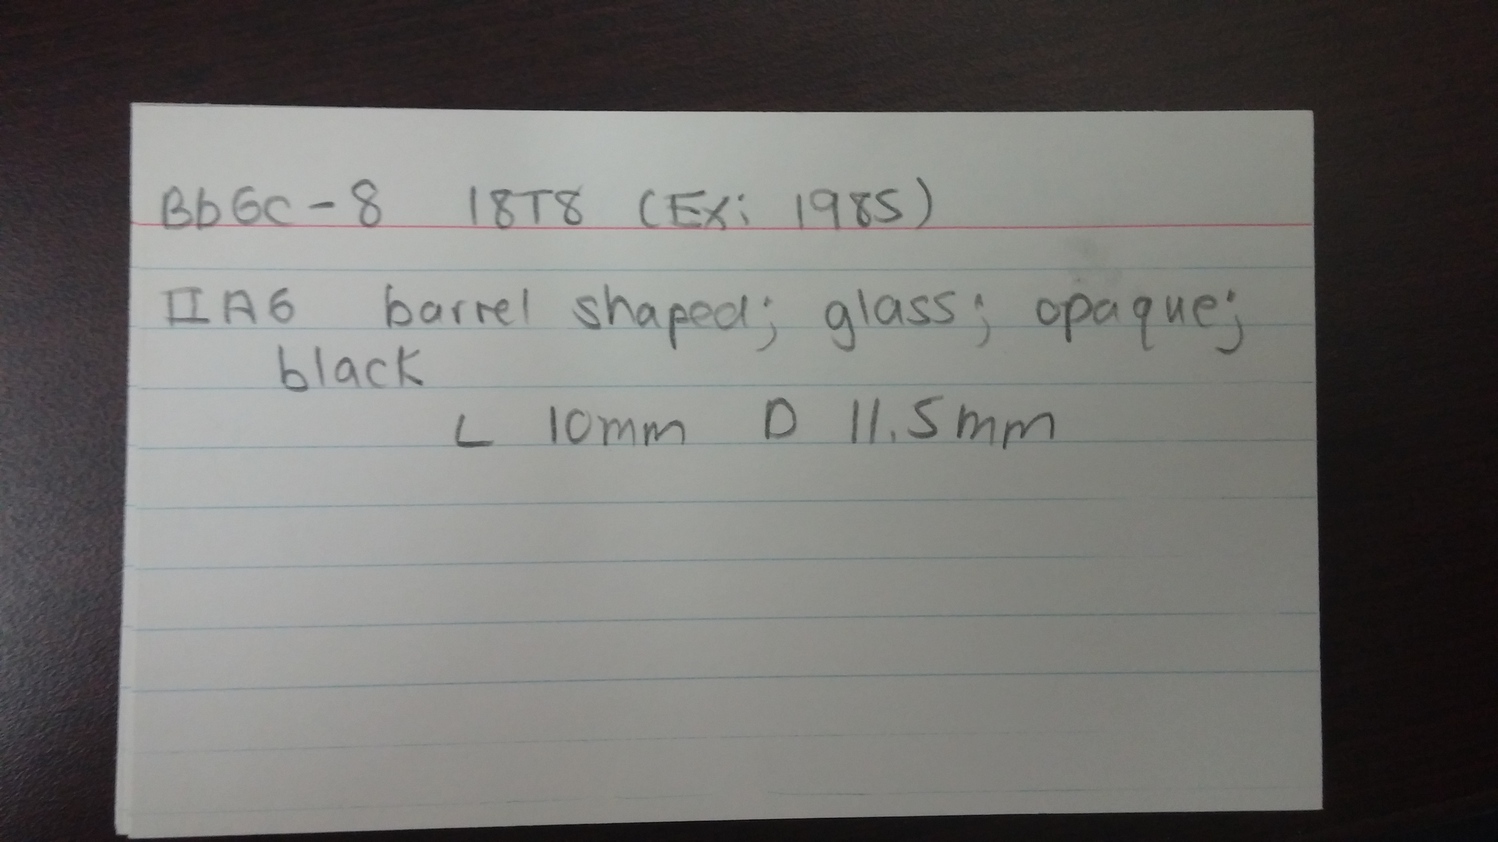 BbGc-8 18T8 (Ex: 1985)
IIA6 barrel shaped; glass; opaque;
black
L 10mm D 11.5mm